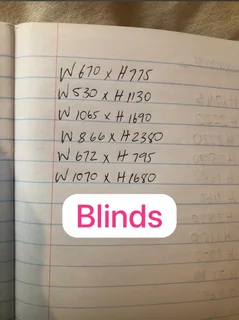 W 670 x H 775
W 530 x H 1130
W 1065 x H 1690
W 8.66 x H 2380
W 672 x H 795
W 1070 x H 1680
Blinds